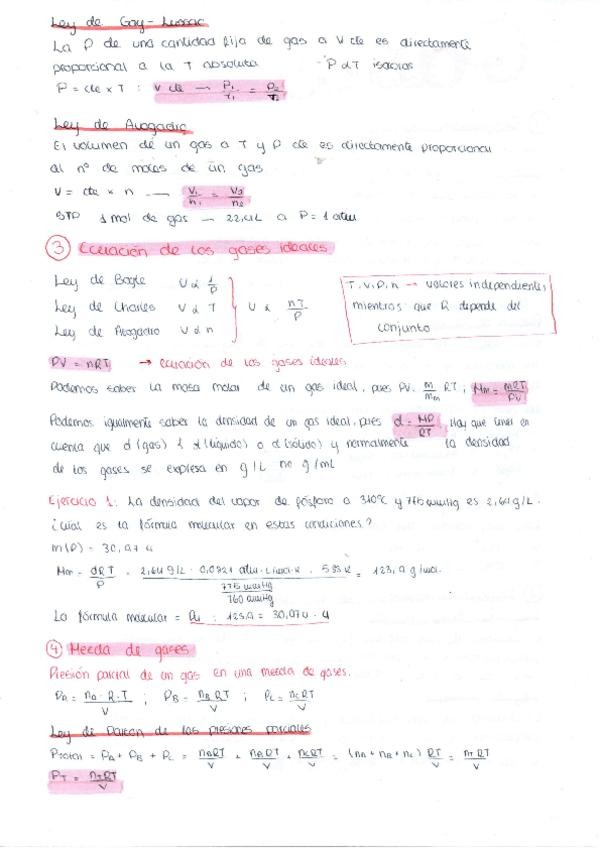 Ley de Gay-Lussac
La P de una cantidad fija de gas a V cte es directamente
proporcional a la T absoluta P α T isócoras
P = cte x T : V cte → P₁/T₁ = P₂/T₂
Ley de Avogadro
El volumen de un gas a T y P cte es directamente proporcional
al nº de moles de un gas
V = cte x n → V₁/n₁ = V₂/n₂
STP 1 mol de gas → 22,4L a P = 1 atm
③ Ecuación de los gases ideales
Ley de Boyle V α 1/P
Ley de Charles V α T V α nT/P
Ley de Avogadro V α n
T, V, P, n → valores independientes,
mientras que R depende del
conjunto
PV = nRT → ecuación de los gases ideales
Podemos saber la masa molar de un gas ideal, pues PV = m/Mm RT ; Mm = mRT/PV
Podemos igualmente saber la densidad de un gas ideal, pues d = MP/RT. Hay que tener en
cuenta que d (gas) d (líquido) o d (sólido) y normalmente la densidad
de los gases se expresa en g/L no g/mL
Ejercicio 1: La densidad del vapor de fósforo a 310ºC y 775 mmHg es 2,64 g/L.
¿Cuál es la fórmula molecular en estas condiciones?
m(P) = 30,97 u
Mm = dRT/P = 2,64 g/L · 0,0821 atm·L/mol·K · 583 K / (775 mmHg / 760 mmHg) = 123,9 g/mol
La fórmula molecular = P₄ : 123,9 = 30,97u · 4
④ Mezcla de gases
Presión parcial de un gas en una mezcla de gases.
PA = nA·R·T/V ; PB = nBRT/V ; PC = nCRT/V
Ley de Dalton de las presiones parciales
Ptotal = PA + PB + PC = nART/V + nBRT/V + nCRT/V = (nA + nB + nC) RT/V = nTRT/V
PT = nTRT/V